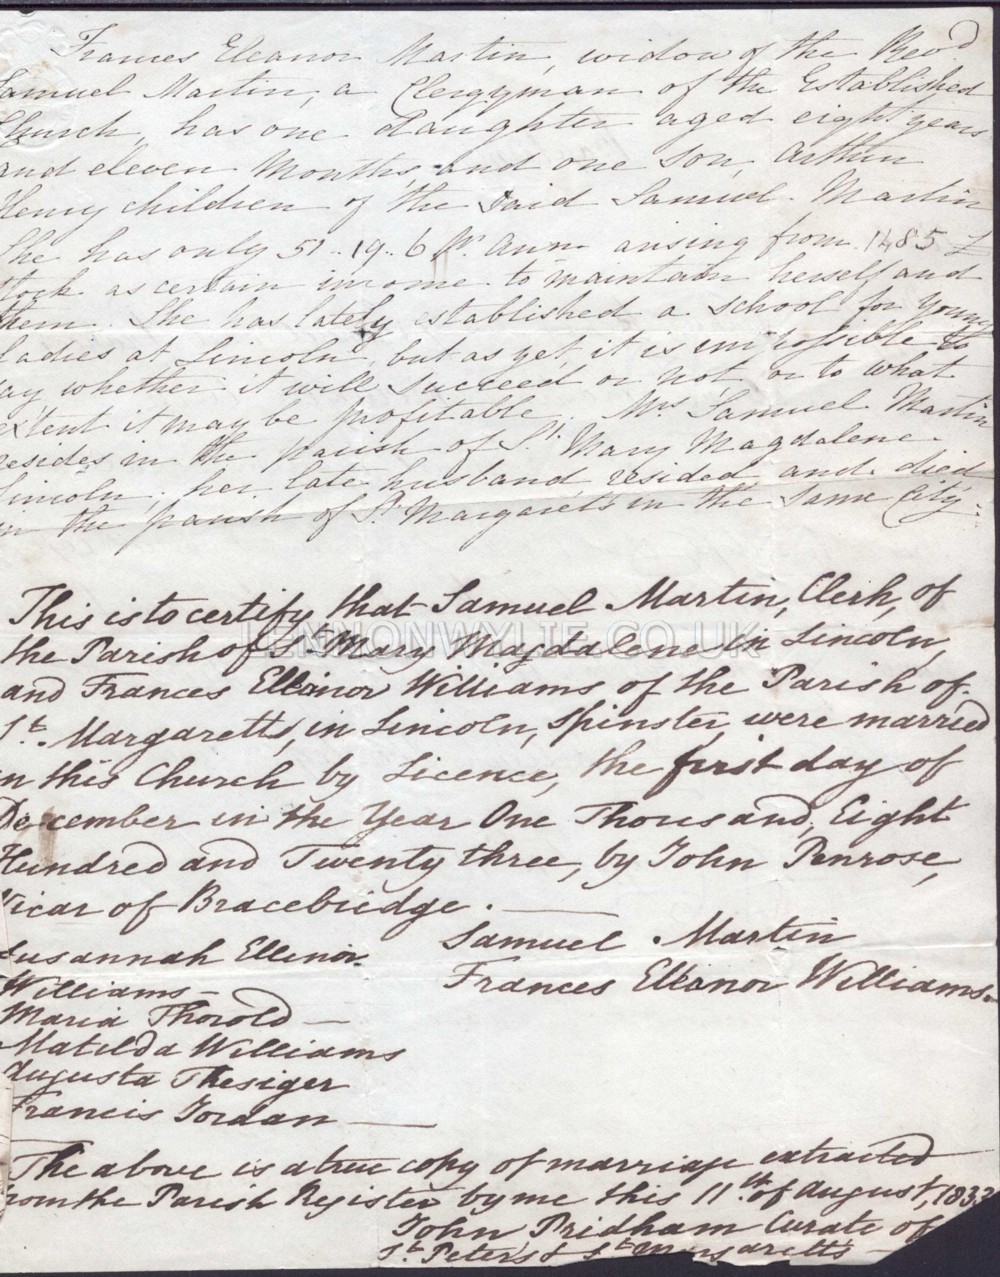 Frances Eleanor Martin, widow of the Revd
Samuel Martin, a Clergyman of the Established
Church, has one daughter aged eight years
and eleven months, and one son, Arthur
Henry children of the said Samuel Martin
She has only 51..19..6 pr. Ann. arising from 1485 £
stock as certain income to maintain herself and
them. She has lately established a school for young
ladies at Lincoln, but as yet, it is impossible to
say whether it will succeed or not, or to what
extent it may be profitable. Mrs Samuel Martin
resides in the parish of St. Mary Magdalene
Lincoln, her late husband resided and died
in the parish of St Margarets in the same City.
This is to certify that Samuel Martin, Clerk, of
the Parish of St Mary Magdalene in Lincoln,
and Frances Elleanor Williams of the Parish of
St. Margaretts, in Lincoln, Spinster, were married
in this Church by Licence, the first day of
December in the Year One Thousand, Eight
Hundred and Twenty three, by John Penrose,
Vicar of Bracebridge.
Samuel Martin
Frances Elleanor Williams.
Susannah Ellinor
Williams
Maria Thorold
Matilda Williams
Augusta Thesiger
Francis Jordan
The above is a true copy of marriage extracted
from the Parish Register by me this 11th of August, 1833
John Pridham Curate of
St. Peter's & St Margaretts
LENNONWYLIE.CO.UK